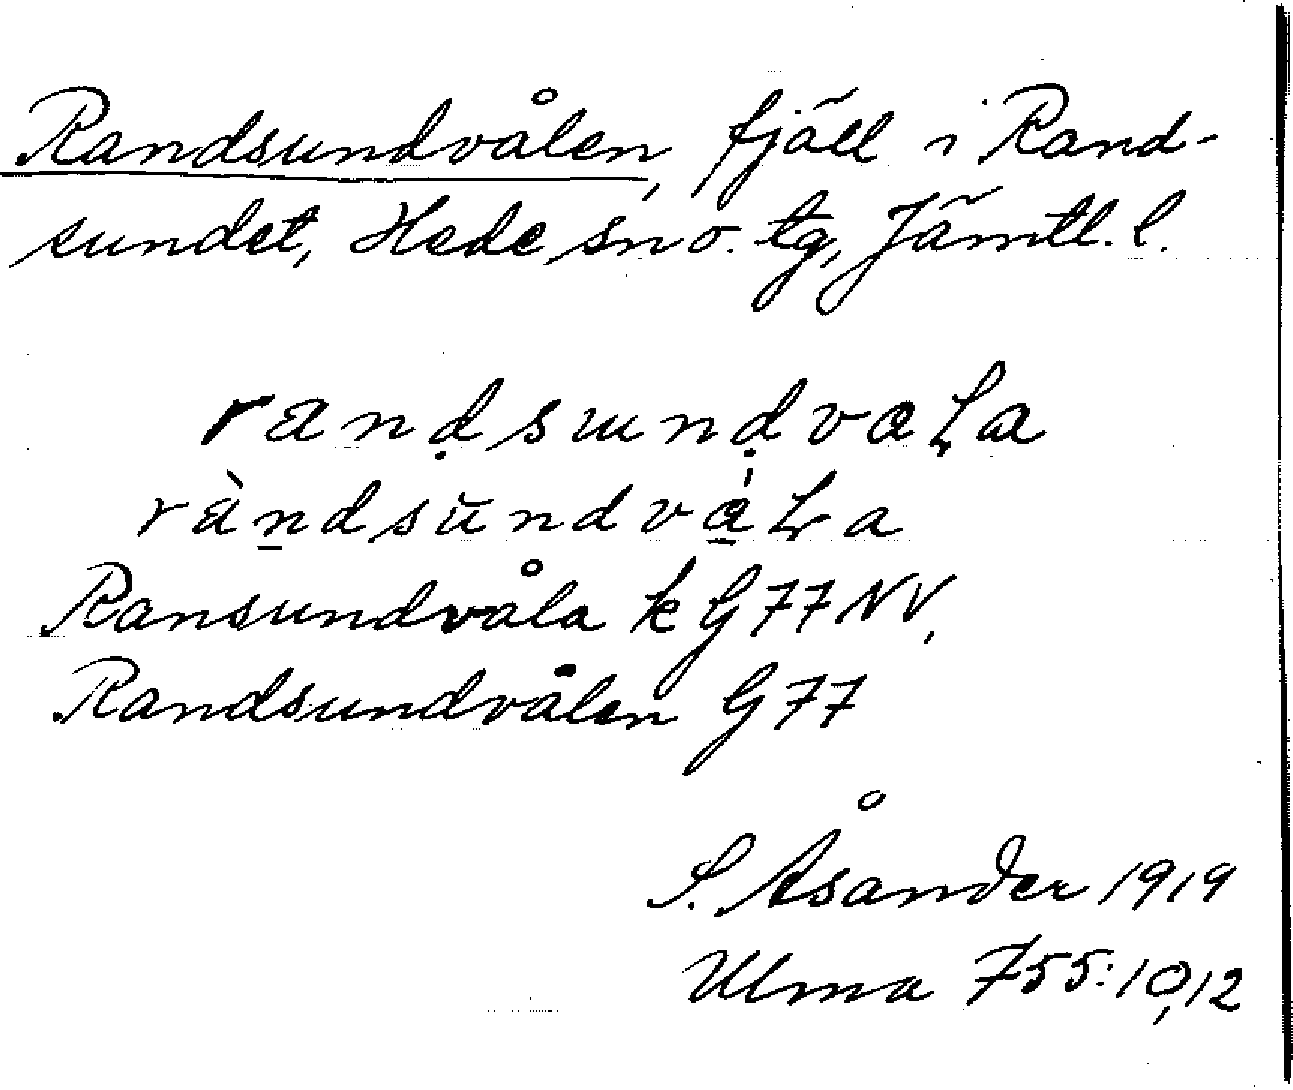 Randsundvålen, fjäll i Rand-
sundet, Hede sn o. tg, Jämtl. l.
ranḍsɯnḍvaꞭa
ràn̲dsŭndvà̲Ɬa
Ransundvåla k G 77 NV,
Randsundvålen G 77
S. Åsander 1919
Ulma 755:10,12